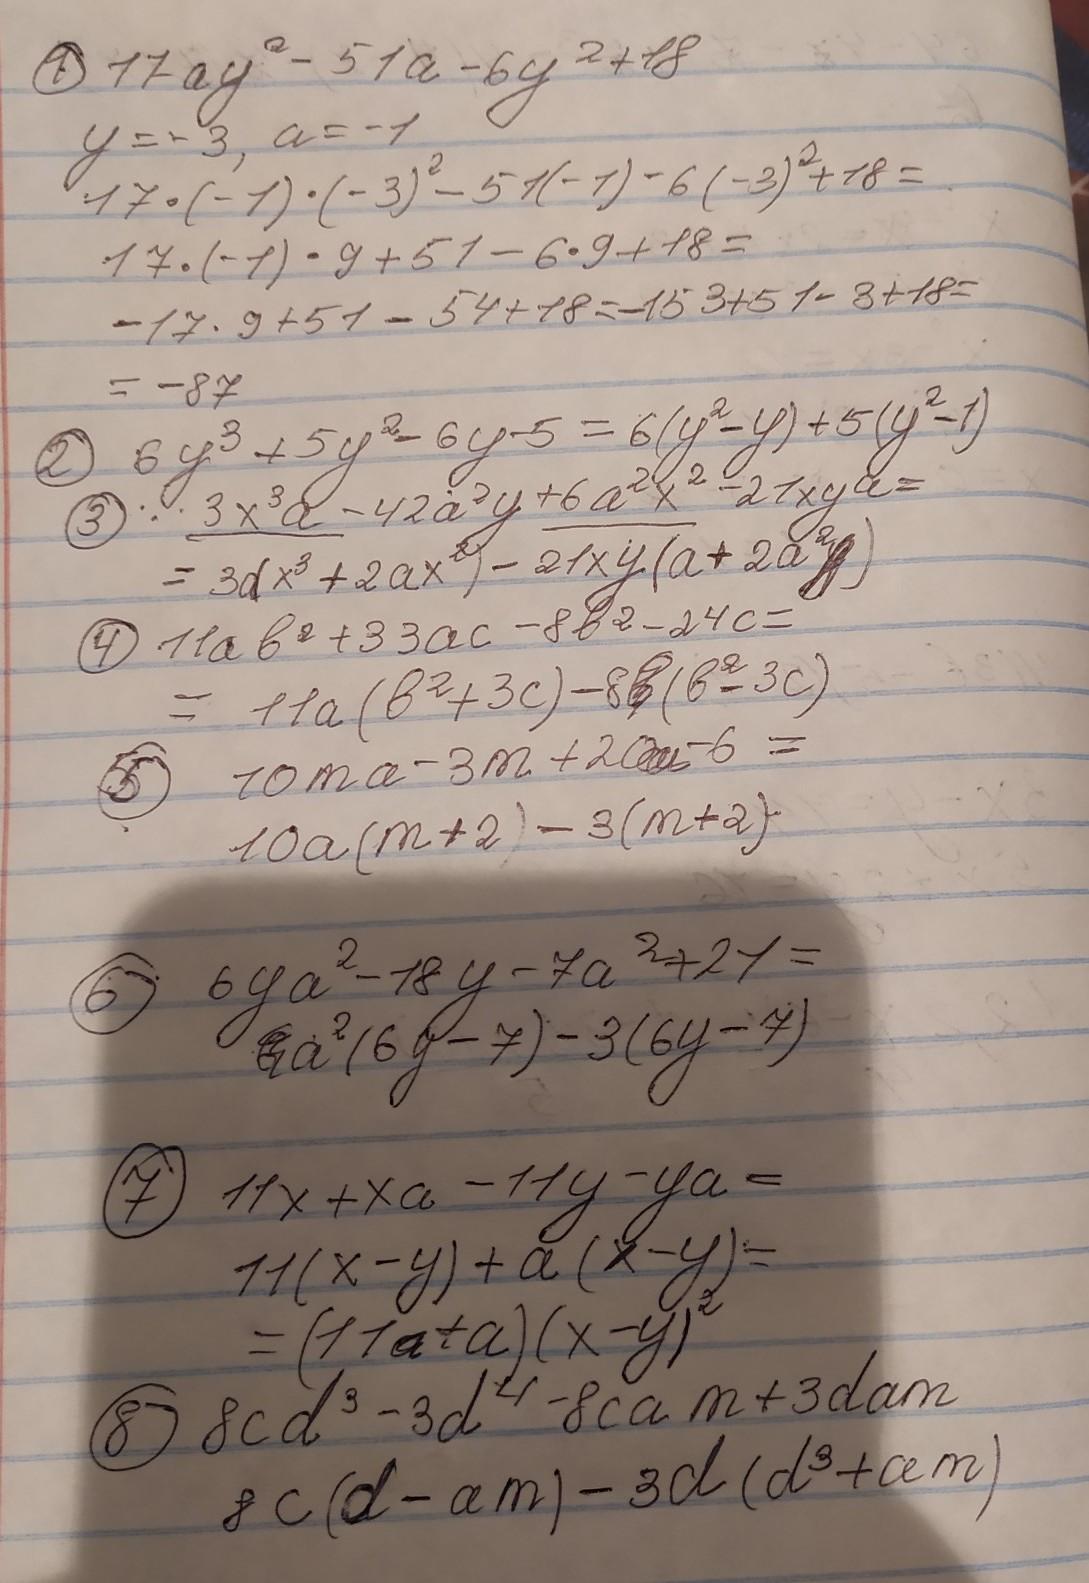 ① 17ay² - 51a - 6y² + 18
y = -3, a = -1
17·(-1)·(-3)² - 51(-1) - 6(-3)² + 18 =
17·(-1)·9 + 51 - 6·9 + 18 =
-17·9 + 51 - 54 + 18 = -153 + 51 - 3 + 18 =
= -87
② 6y³ + 5y² - 6y - 5 = 6(y² - y) + 5(y² - 1)
③ 3x³a - 42a²y + 6a²x² - 21xya =
= 3(x³ + 2ax²) - 21xy(a + 2a²)
④ 11ab² + 33ac - 8b² - 24c =
= 11a(b² + 3c) - 8(b² - 3c)
⑤ 10ma - 3m + 20a - 6 =
10a(m + 2) - 3(m + 2)
⑥ 6ya² - 18y - 7a² + 21 =
a²(6y - 7) - 3(6y - 7)
⑦ 11x + xa - 11y - ya =
11(x - y) + a(x - y) =
= (11a + a)(x - y)²
⑧ 8cd³ - 3d⁴ - 8cam + 3dam
8c(d - am) - 3d(d³ + am)